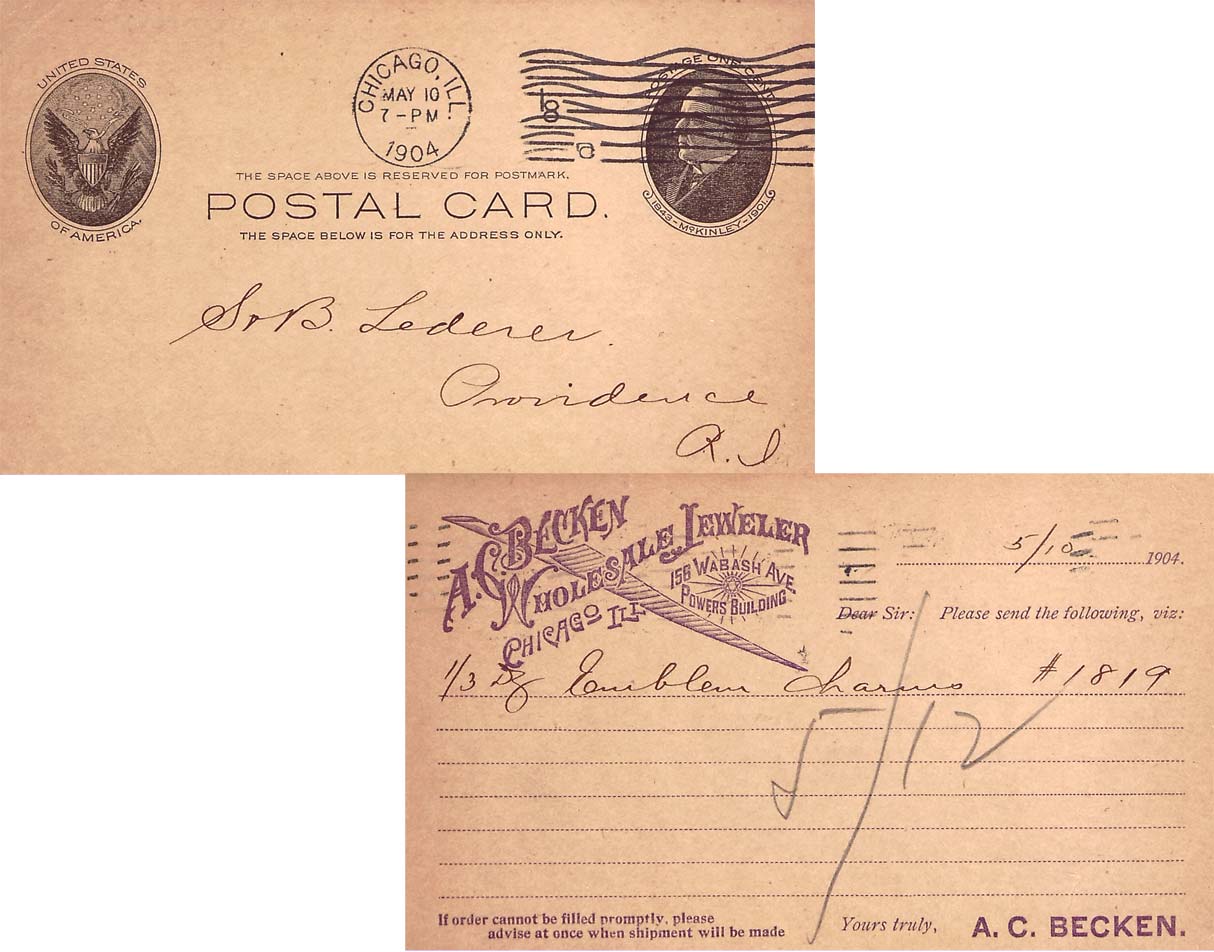 UNITED STATES
OF AMERICA.
CHICAGO, ILL.
MAY 10
7-PM
1904
POSTAGE ONE CENT
1843-McKINLEY-1901.
THE SPACE ABOVE IS RESERVED FOR POSTMARK.
POSTAL CARD.
THE SPACE BELOW IS FOR THE ADDRESS ONLY.
S & B. Lederer.
Providence
R.I
A.C. BECKEN
WHOLESALE JEWELER
156 WABASH AVE.
POWERS BUILDING
CHICAGO ILL.
5/10 1904.
Dear Sir: Please send the following, viz:
1/3 Dz Emblem Charms #1819
5/12
If order cannot be filled promptly, please
advise at once when shipment will be made
Yours truly, A. C. BECKEN.